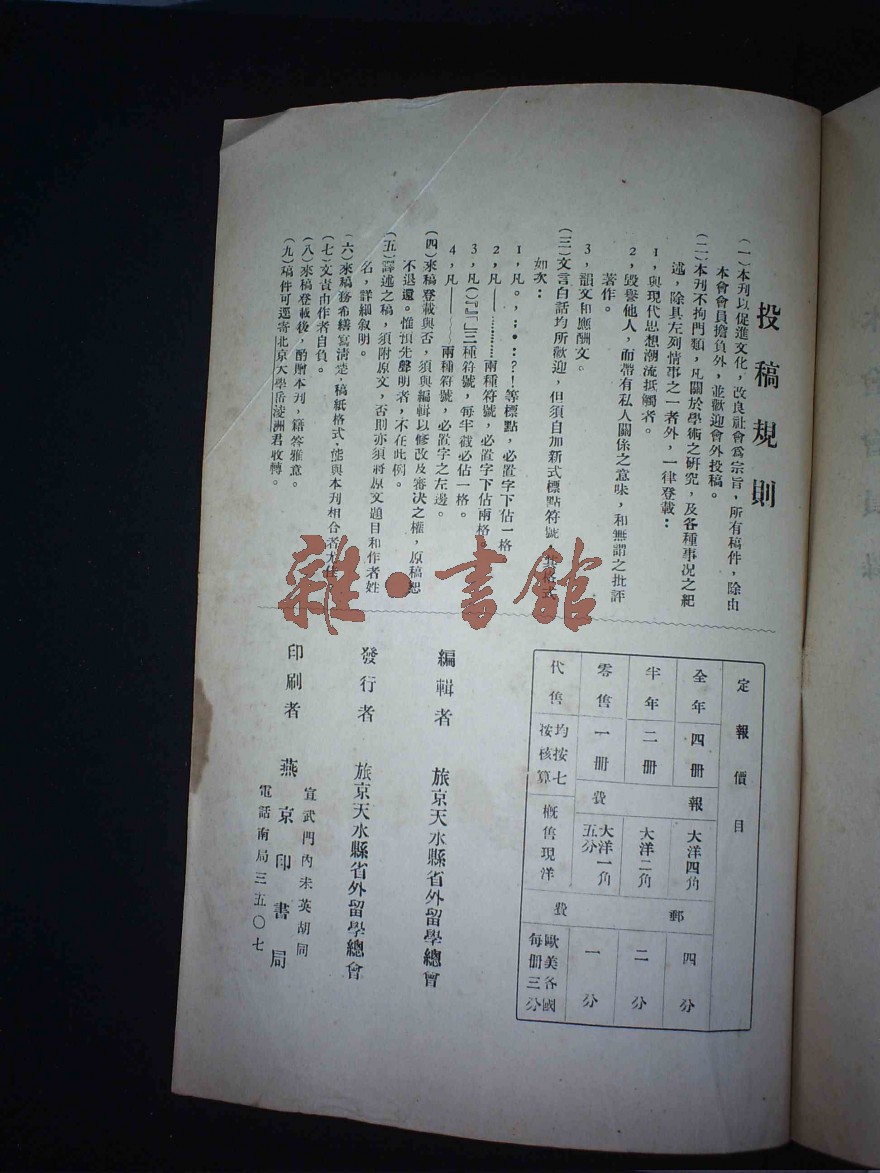 投稿規則
(一)本刊以促進文化,改良社會爲宗旨,所有稿件,除由
本會會員擔負外,並歡迎會外投稿。
(二)本刊不拘門類,凡關於學術之研究,及各種事况之紀
述,除具左列情事之一者外,一律登載:
1,與現代思想潮流抵觸者。
2,毀譽他人,而帶有私人關係之意味,和無謂之批評
著作。
3,韻文和應酬文。
(三)文言白話均所歡迎,但須自加新式標點符號
如次:
1,凡。,;:?!等標點,必置字下佔一格
2,凡——…………兩種符號,必置字下佔兩格
3,凡()『』「」三種符號,每半截必佔一格。
4,凡——﹏﹏兩種符號,必置字之左邊。
(四)來稿登載與否,須與編輯以修改及審决之權,原稿恕
不退還。惟預先聲明者,不在此例。
(五)譯述之稿,須附原文,否則亦須將原文題目和作者姓
名,詳細叙明。
(六)來稿務希繕寫清楚,稿紙格式,能與本刊相合者尤佳
(七)文責由作者自負。
(八)來稿登載後,酌贈本刊,藉答雅意。
(九)稿件可逕寄北京大學岳凌洲君收轉。
雜·書館
定報價目
全年 四册 報 大洋四角 郵 四分
半年 二册 大洋二角 二分
零售 一册 費 大洋一角五分 費 一分
代售 均按七按核算 概售現洋 歐美各國每册三分
編輯者 旅京天水縣省外留學總會
發行者 旅京天水縣省外留學總會
印刷者 燕京印書局
宣武門內未英胡同
電話南局三五〇七